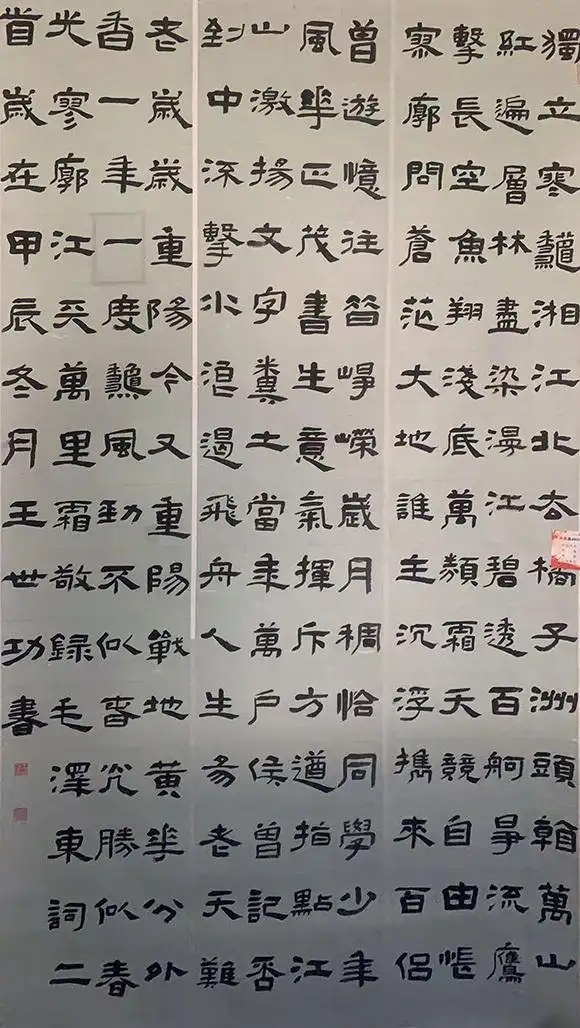 獨立寒龝湘江北去橘子洲頭看萬山
紅遍層林盡染漫江碧透百舸爭流鷹
擊長空魚翔淺底萬類霜天競自由悵
寥廓問蒼茫大地誰主沉浮攜來百侶
曾遊憶往昔崢嶸歲月稠恰同學少年
風華正茂書生意氣揮斥方遒指點江
山激揚文字糞土當年萬戶侯曾記否
到中流擊水浪遏飛舟人生易老天難
老歲歲重陽今又重陽戰地黃華分外
香一年一度龝風勁不似春光勝似春
光寥廓江天萬里霜敬録毛澤東詞二
首歲在甲辰冬月王世功書